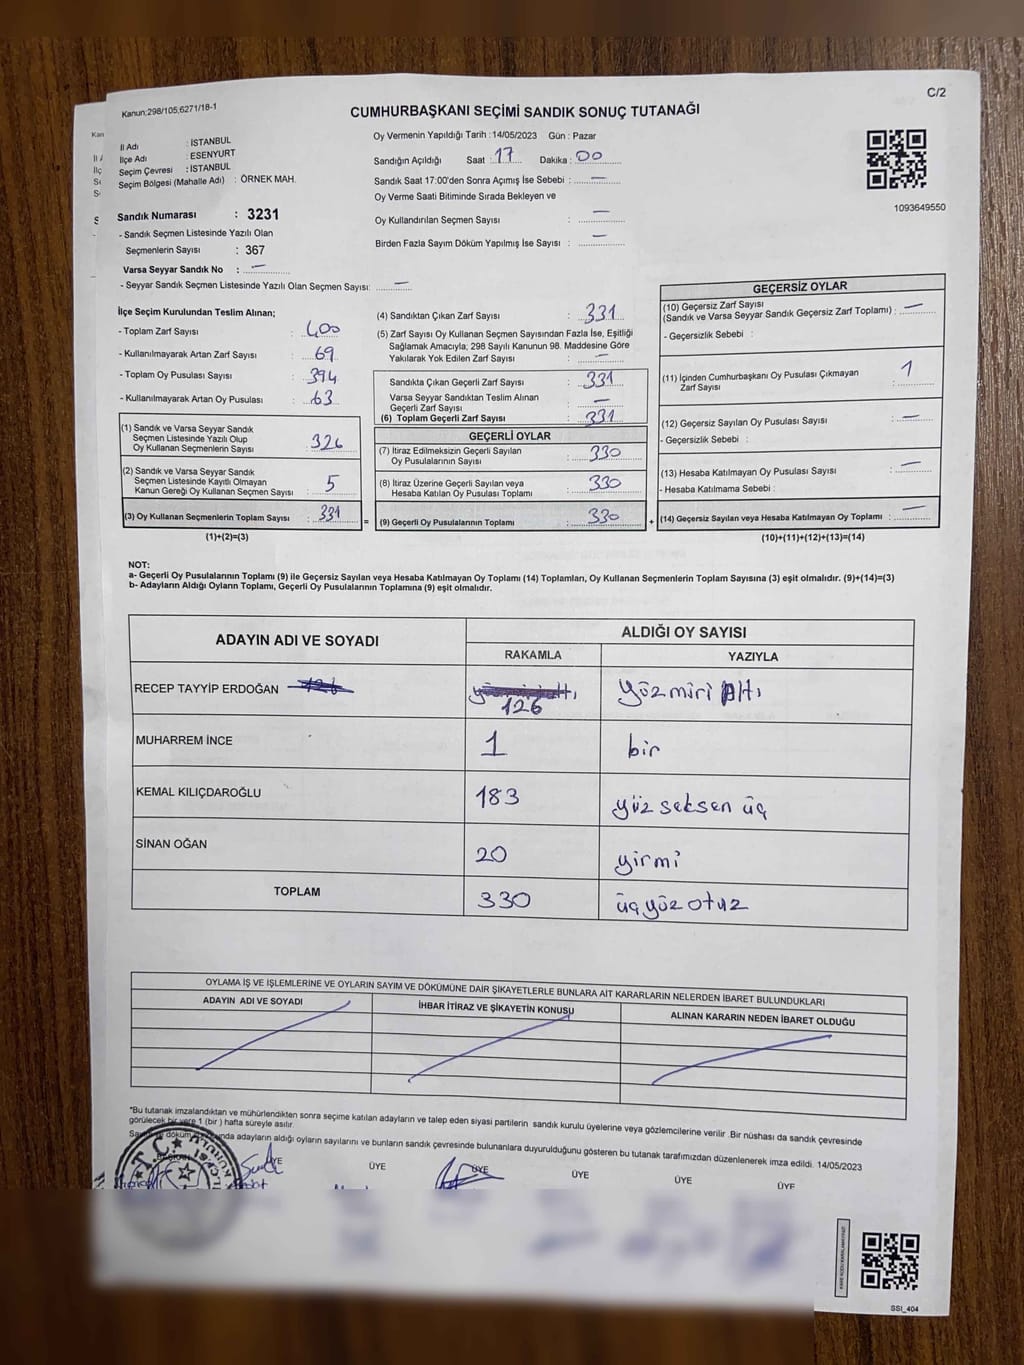 C/2
Kanun;298/105;6271/18-1
CUMHURBAŞKANI SEÇİMİ SANDIK SONUÇ TUTANAĞI
İl Adı : İSTANBUL
İlçe Adı : ESENYURT
Seçim Çevresi : İSTANBUL
Seçim Bölgesi (Mahalle Adı) : ÖRNEK MAH.
Oy Vermenin Yapıldığı Tarih :14/05/2023 Gün : Pazar
Sandığın Açıldığı Saat : 17 Dakika : 00
Sandık Saat 17:00'den Sonra Açımış İse Sebebi : —
Oy Verme Saati Bitiminde Sırada Bekleyen ve
Oy Kullandırılan Seçmen Sayısı : —
Birden Fazla Sayım Döküm Yapılmış İse Sayısı : —
1093649550
Sandık Numarası : 3231
- Sandık Seçmen Listesinde Yazılı Olan
Seçmenlerin Sayısı : 367
Varsa Seyyar Sandık No : —
- Seyyar Sandık Seçmen Listesinde Yazılı Olan Seçmen Sayısı: —
İlçe Seçim Kurulundan Teslim Alınan;
- Toplam Zarf Sayısı : 400
- Kullanılmayarak Artan Zarf Sayısı : 69
- Toplam Oy Pusulası Sayısı : 394
- Kullanılmayarak Artan Oy Pusulası : 63
(1) Sandık ve Varsa Seyyar Sandık
Seçmen Listesinde Yazılı Olup
Oy Kullanan Seçmenlerin Sayısı : 326
(2) Sandık ve Varsa Seyyar Sandık
Seçmen Listesinde Kayıtlı Olmayan
Kanun Gereği Oy Kullanan Seçmen Sayısı : 5
(3) Oy Kullanan Seçmenlerin Toplam Sayısı : 331
(1)+(2)=(3)
(4) Sandıktan Çıkan Zarf Sayısı : 331
(5) Zarf Sayısı Oy Kullanan Seçmen Sayısından Fazla İse, Eşitliği
Sağlamak Amacıyla; 298 Sayılı Kanunun 98. Maddesine Göre
Yakılarak Yok Edilen Zarf Sayısı : —
Sandıkta Çıkan Geçerli Zarf Sayısı : 331
Varsa Seyyar Sandıktan Teslim Alınan
Geçerli Zarf Sayısı : —
(6) Toplam Geçerli Zarf Sayısı : 331
GEÇERLİ OYLAR
(7) İtiraz Edilmeksizin Geçerli Sayılan
Oy Pusulalarının Sayısı : 330
(8) İtiraz Üzerine Geçerli Sayılan veya
Hesaba Katılan Oy Pusulası Toplamı : 330
= (9) Geçerli Oy Pusulalarının Toplamı : 330
GEÇERSİZ OYLAR
(10) Geçersiz Zarf Sayısı
(Sandık ve Varsa Seyyar Sandık Geçersiz Zarf Toplamı) : —
- Geçersizlik Sebebi :
(11) İçinden Cumhurbaşkanı Oy Pusulası Çıkmayan
Zarf Sayısı : 1
(12) Geçersiz Sayılan Oy Pusulası Sayısı : —
- Geçersizlik Sebebi :
(13) Hesaba Katılmayan Oy Pusulası Sayısı : —
- Hesaba Katılmama Sebebi :
+ (14) Geçersiz Sayılan veya Hesaba Katılmayan Oy Toplamı : —
(10)+(11)+(12)+(13)=(14)
NOT:
a- Geçerli Oy Pusulalarının Toplamı (9) ile Geçersiz Sayılan veya Hesaba Katılmayan Oy Toplamı (14) Toplamları, Oy Kullanan Seçmenlerin Toplam Sayısına (3) eşit olmalıdır. (9)+(14)=(3)
b- Adayların Aldığı Oyların Toplamı, Geçerli Oy Pusulalarının Toplamına (9) eşit olmalıdır.
ADAYIN ADI VE SOYADI
ALDIĞI OY SAYISI
RAKAMLA YAZIYLA
RECEP TAYYİP ERDOĞAN 126 yüzmiri Altı
MUHARREM İNCE 1 bir
KEMAL KILIÇDAROĞLU 183 yüz seksen üç
SİNAN OĞAN 20 yirmi
TOPLAM 330 üçyüz otuz
OYLAMA İŞ VE İŞLEMLERİNE VE OYLARIN SAYIM VE DÖKÜMÜNE DAİR ŞİKAYETLERLE BUNLARA AİT KARARLARIN NELERDEN İBARET BULUNDUKLARI
ADAYIN ADI VE SOYADI İHBAR İTİRAZ VE ŞİKAYETİN KONUSU ALINAN KARARIN NEDEN İBARET OLDUĞU
"Bu tutanak imzalandıktan ve mühürlendikten sonra seçime katılan adayların ve talep eden siyasi partilerin sandık kurulu üyelerine veya gözlemcilerine verilir .Bir nüshası da sandık çevresinde
görülecek bir yere 1 (bir ) hafta süreyle asılır.
döküm adayların aldığı oyların sayılarını ve bunların sandık çevresinde bulunanlara duyurulduğunu gösteren bu tutanak tarafımızdan düzenlenerek imza edildi. 14/05/2023
T.C.
ÜYE ÜYE ÜYE ÜYE ÜYE ÜYE
SSI_404